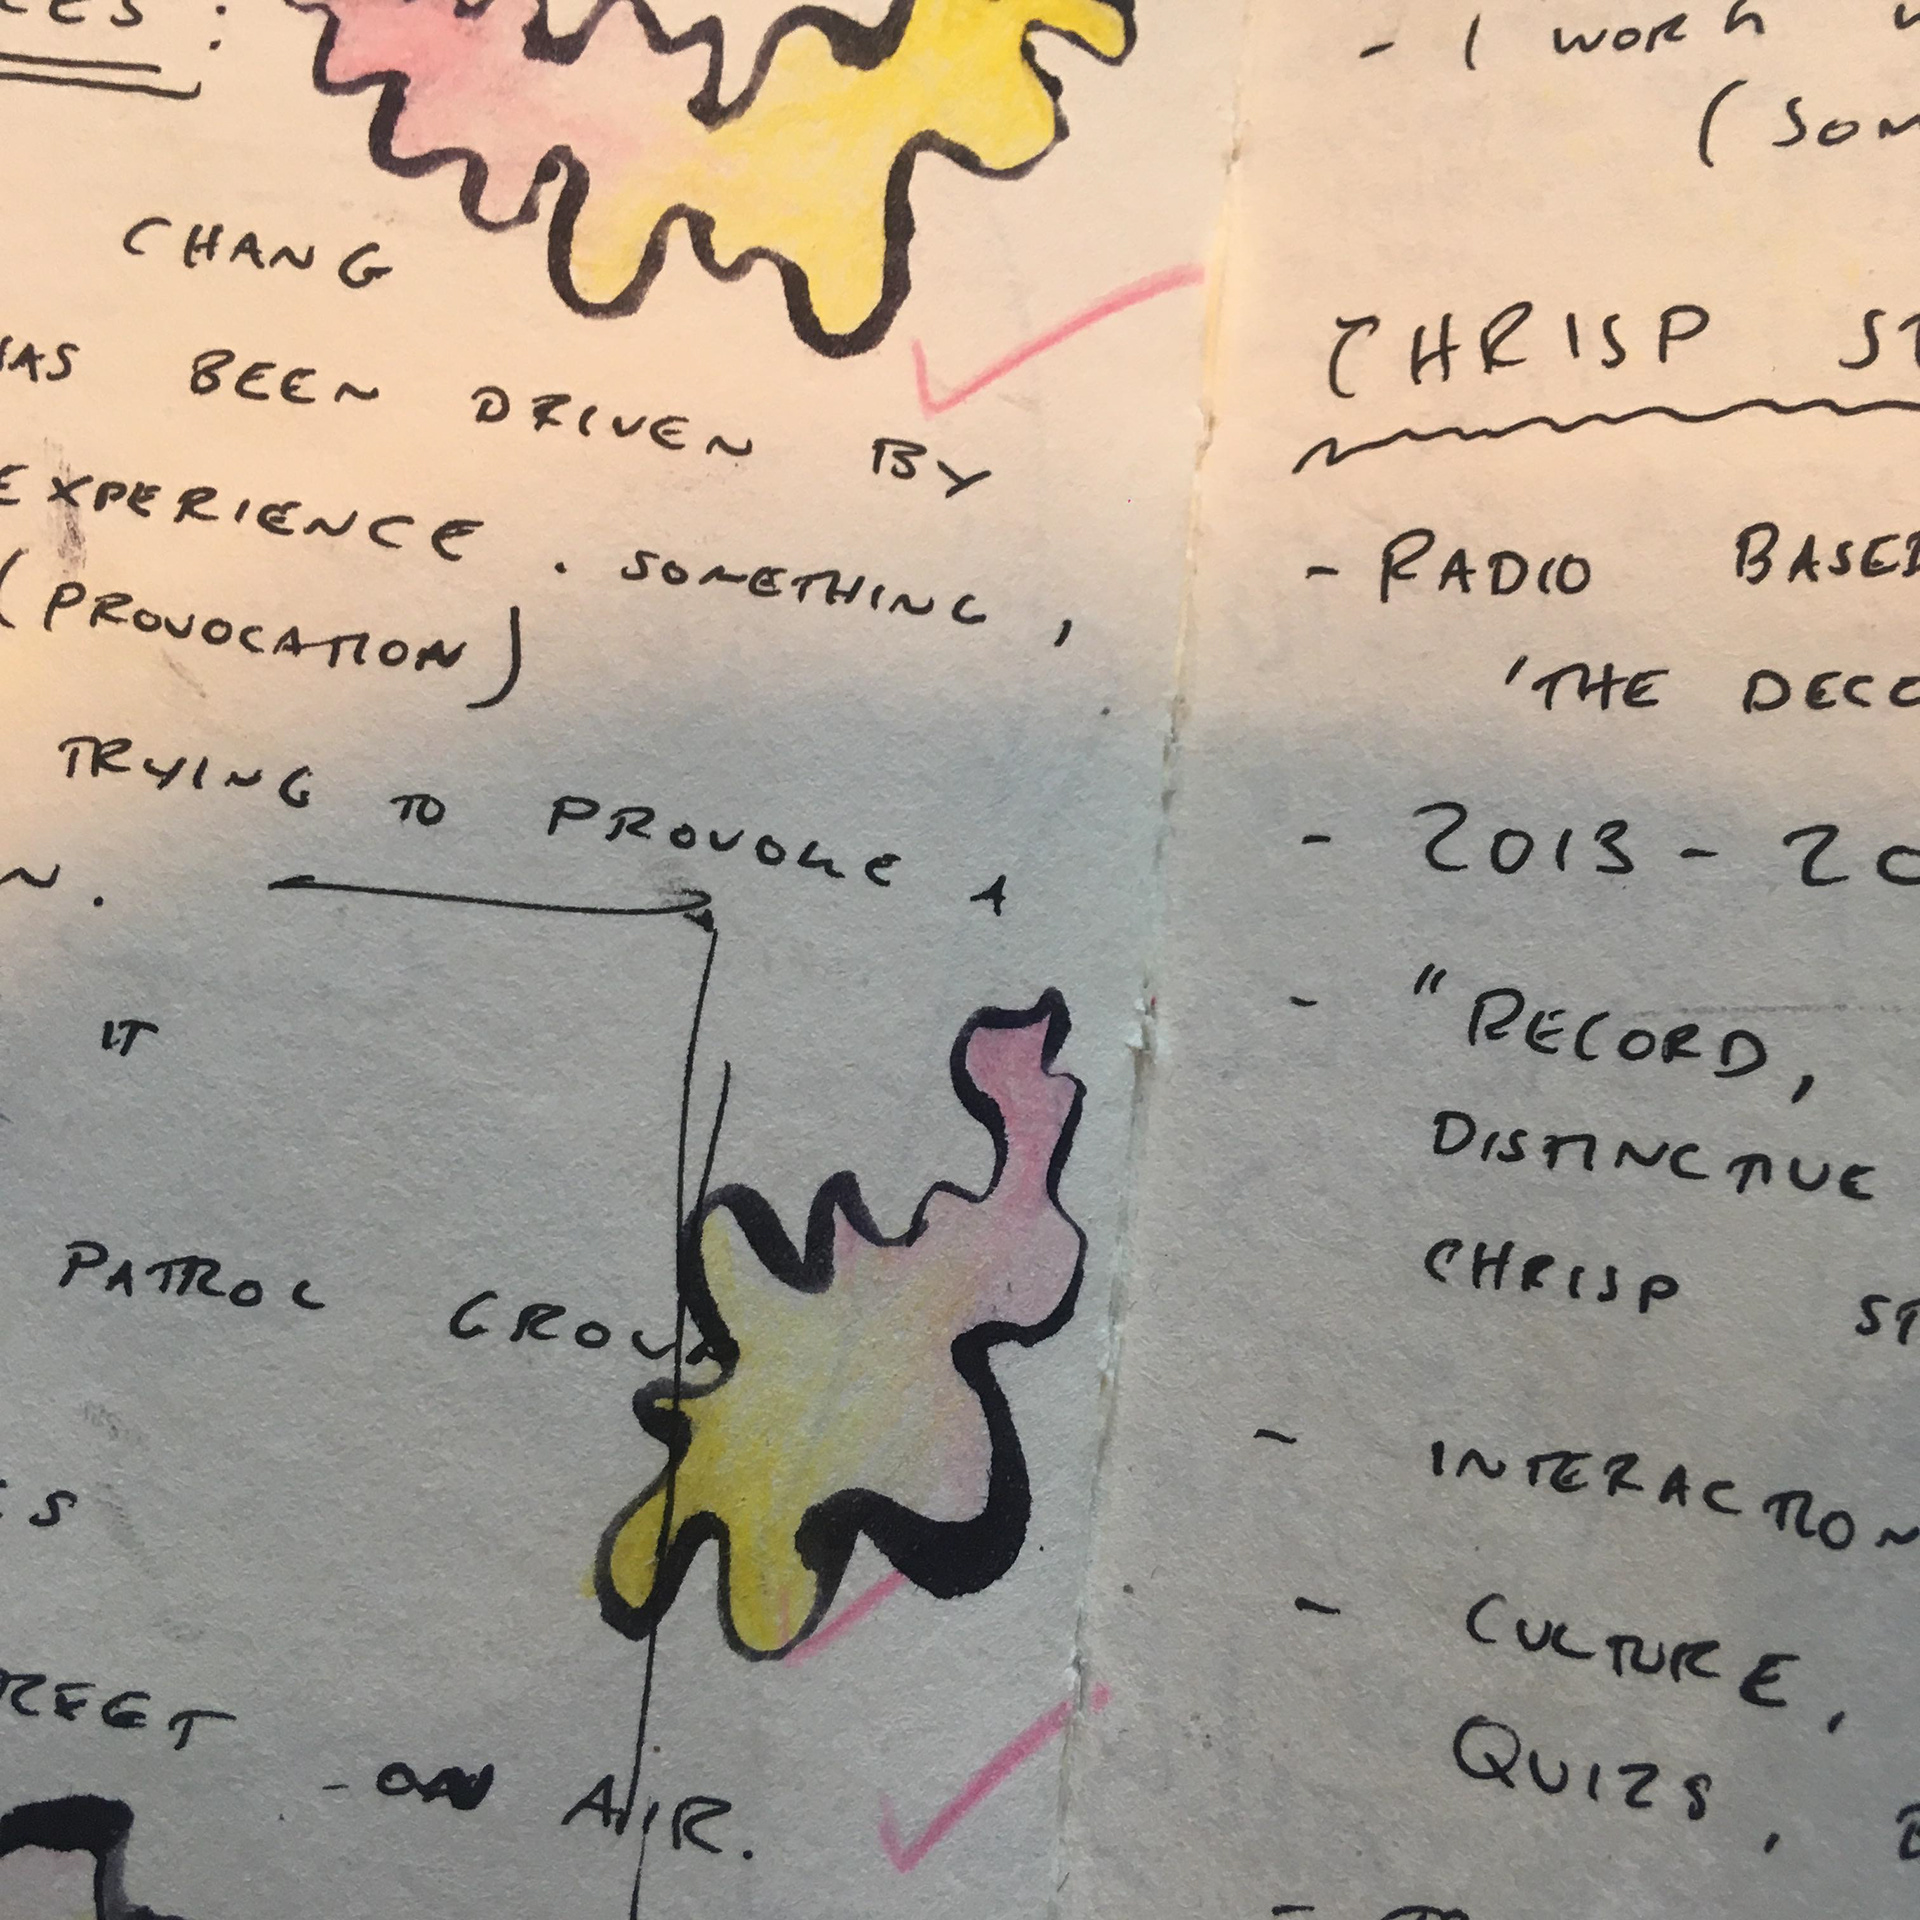 CHANG
HAS BEEN DRIVEN BY
EXPERIENCE. SOMETHING,
(PROVOCATION)
TRYING TO PROVOKE A
IT
PATROL GROUP
REET - ON AIR.
- I WORK
(SOM
CHRISP ST
- RADIO BASED
'THE DECO
- 2013 - 20
- "RECORD,
DISTINCTIVE
CHRISP ST
- INTERACTION
- CULTURE,
QUIZS,